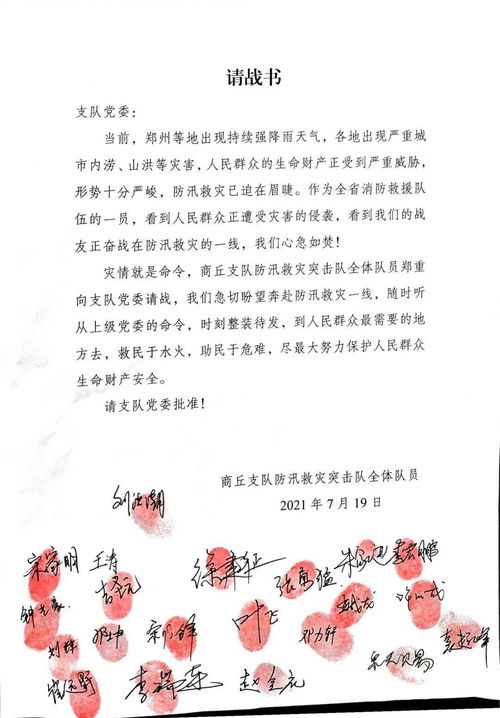 请战书
支队党委：
当前，郑州等地出现持续强降雨天气，各地出现严重城
市内涝、山洪等灾害，人民群众的生命财产正受到严重威胁，
形势十分严峻，防汛救灾已迫在眉睫。作为全省消防救援队
伍的一员，看到人民群众正遭受灾害的侵袭，看到我们的战
友正奋战在防汛救灾的一线，我们心急如焚！
灾情就是命令，商丘支队防汛救灾突击队全体队员郑重
向支队党委请战，我们急切盼望奔赴防汛救灾一线，随时听
从上级党委的命令，时刻整装待发，到人民群众最需要的地
方去，救民于水火，助民于危难，尽最大努力保护人民群众
生命财产安全。
请支队党委批准！
商丘支队防汛救灾突击队全体队员
2021年7月19日
王涛
叶飞
刘烨